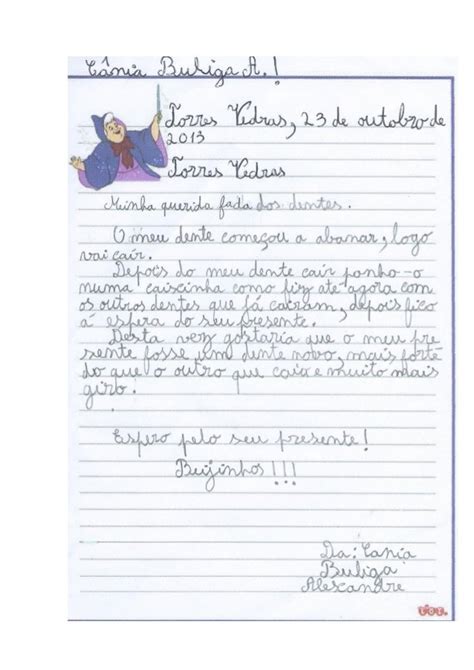 Cânia Buliga A.!
Torres Vedras, 23 de outobro de
2013
Torres Vedras
Minha querida fada dos dentes.
O meu dente começou a abanar, logo
vai cair.
Depois do meu dente cair ponho-o
numa caixinha como fiz até agora com
os outros dentes que já cairam, depois fico
á espera do seu presente.
Desta vez gostaria que o meu pre
sente fosse um dente novo, mais forte
do que o outro que caia e muito mais
giro.
Espero pelo seu presente!
Beijinhos!!!
Da: Cania
Buliga
Alexandre